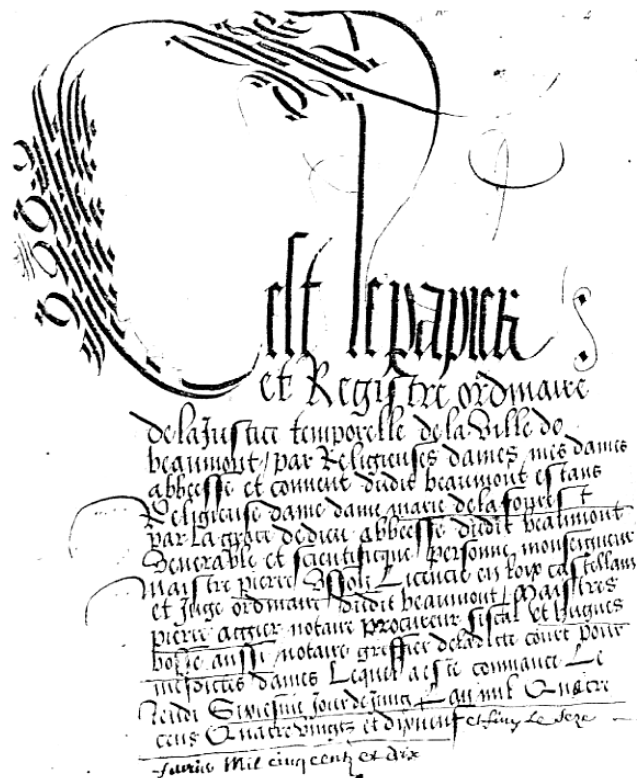 Cest le papier
et Registre ordinaire
de la Justice temporelle de la Ville de
beaumont / par Religieuses dames mes dames
abbeesse et convent dudit beaumont estans
Religieuse dame dame marie de la forrest
par La grace de dieu abbeesse dudit beaumont
Venerable et scientificque personne monseigneur
maistre pierre Licencie en loix castellain
et Juge ordinaire dudit beaumont / Maistres
pierre notaire procureur fiscal et hugues
aussi notaire greffier de ladicte court pour
mesdictes dames Lequel a este commance Le
Jeudi Jour de Juing Lan mil Quatre
cens Quatre vingtz et dixneuf et finy Le seze
Mil cinq centz et dix